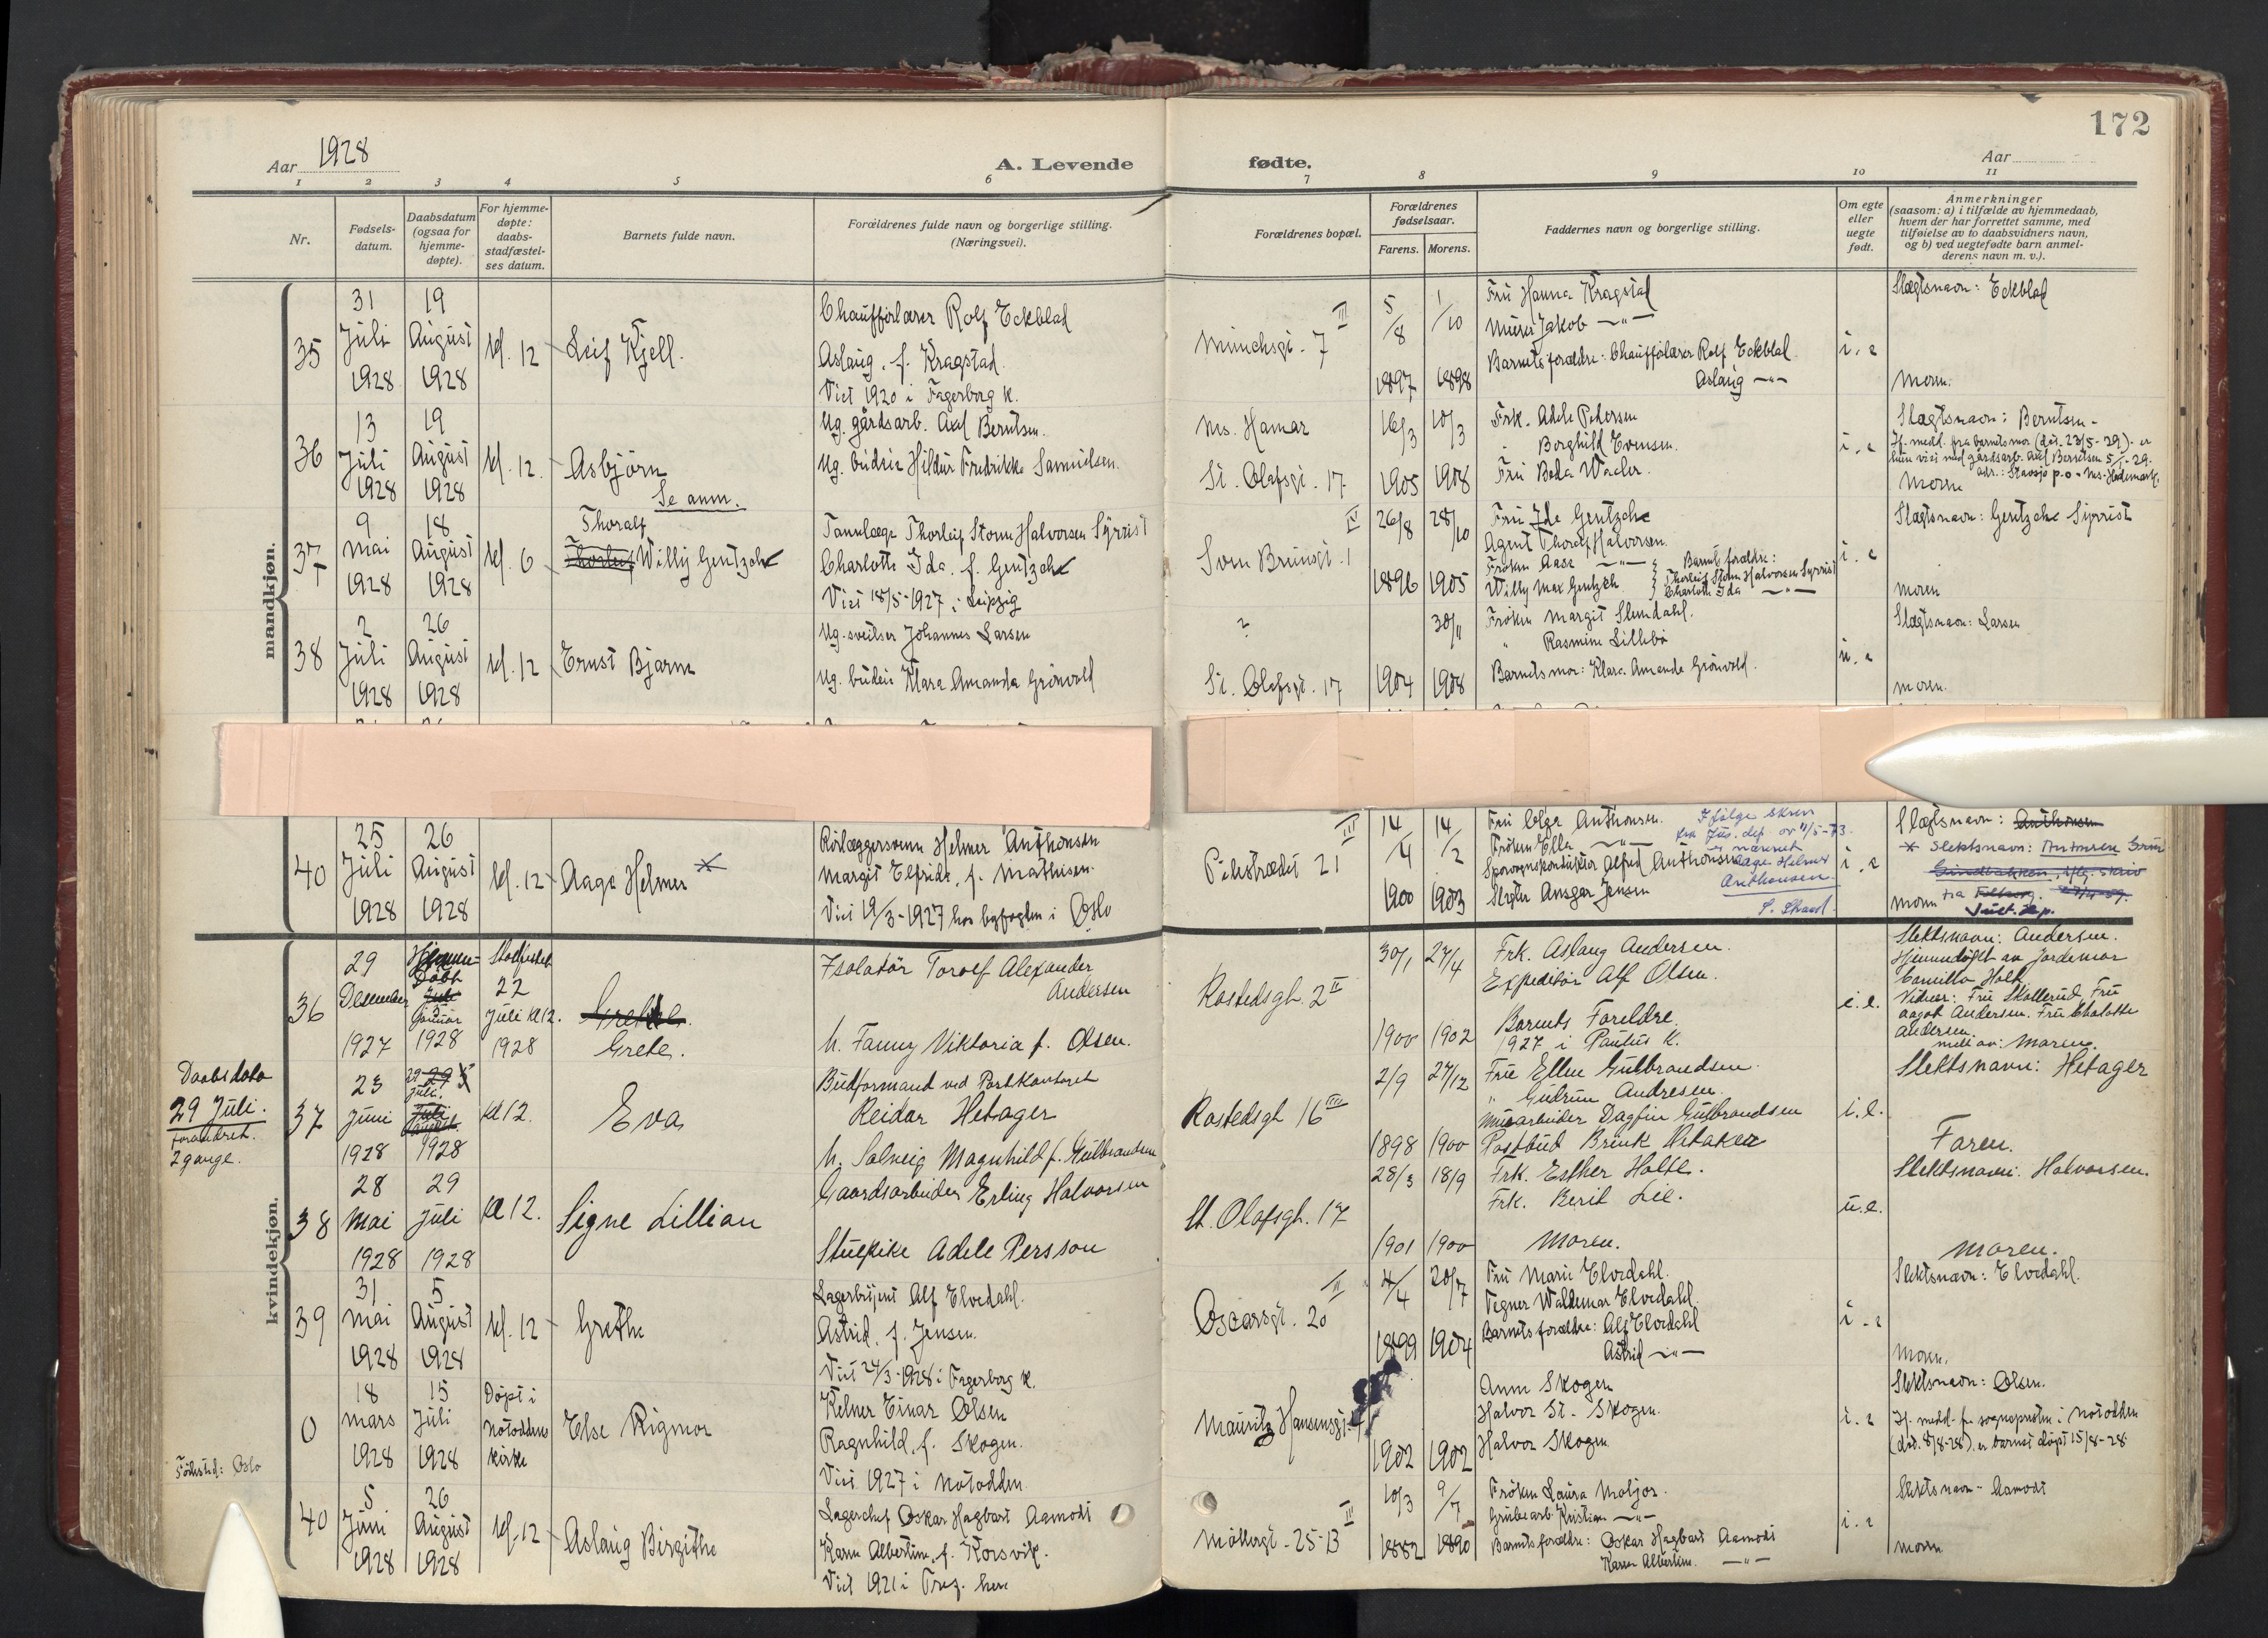 Aar 1928
A. Levende
fødte.
172
Aar
1 2 3 4 5 6 7 8 9 10 11
Nr.
Fødsels-
datum.
Daabsdatum
(ogsaa for
hjemme-
døpte).
For hjemme-
døpte:
daabs-
stadfæstel-
ses datum.
Barnets fulde navn.
Forældrenes fulde navn og borgerlige stilling.
(Næringsvei).
Forældrenes bopæl.
Forældrenes
fødselsaar.
Farens. Morens.
Faddernes navn og borgerlige stilling.
Om egte
eller
uegte
født.
Anmerkninger
(saasom: a) i tilfælde av hjemmedaab,
hvem der har forrettet samme, med
tilføielse av to daabsvidners navn,
og b) ved uegtefødte barn anmel-
derens navn m. v.).
mandkjøn.
35
31
Juli
1928
19
August
1928
kl. 12
Leif Kjell.
Chaufførlærer Rolf Eckblad
Aslaug, f. Kragstad.
Viet 1920 i Fagerborg k.
Munchsgt. 7 III
5/8
1897
1/10
1898
Fru Hanna Kragstad
Murer Jakob —"—
Barnets forældre: Chaufførlærer Rolf Eckblad
Aslaug —"—
i. e
Slægtsnavn: Eckblad
Moren.
36
13
Juli
1928
19
August
1928
kl. 12.
Asbjørn
Se anm.
Ug. gårdsarb. Axel Berntsen.
Ug. budeie Hildur Fredrikke Samuelsen.
Nes. Hamar
St. Olafsgt. 17
16/3
1905
10/3
1908
Frk. Adele Pedersen
" Borghild Evensen.
Fru Beda Wacler.
Slægtsnavn: Berntsen -
If. medd. fra barnets mor (dat. 23/5-29) - er
hun viet med gårdsarb. Axel Berntsen 5/1-29.
adr.: Stavsjø p.o - Nes-Hedemark.
Moren
37
9
Mai
1928
18
August
1928
kl. 6
Thoralf
Thorleif Willy Gentzsch
Tannlæge Thorleif Storm Halvorsen Syrrist
Charlotte Ida, f. Gentzsch
Viet 18/5-1927 i Leipzig
Sven Brunsgt. 1 IV
26/8
1896
28/10
1905
Fru Ida Gentzsch
Agent Thoralf Halvorsen
Frøken Aase —"—
Willy Max Gentzsch
Barnets forældre:
Thorleif Storm Halvorsen Syrrist
Charlotte Ida —"—
i. e
Slægtsnavn: Gentzsch Syrrist
Moren
38
2
Juli
1928
26
August
1928
kl. 12
Ernst Bjarne
Ug. sveitser Johannes Larsen
Ug. budeie Klara Amanda Grønvold
?
St. Olafsgt. 17
1904
30/11
1908
Frøken Margit Slemdahl.
" Rasmine Lillebø
Barnets mor: Klara Amanda Grønvold.
u. e
Slægtsnavn: Larsen
Moren.
40
25
Juli
1928
26
August
1928
kl. 12
Aage Helmer *
Rørlæggersvenn Helmer Anthonsen
Margit Elfrida, f. Mathisen.
Viet 19/3-1927 hos byfogden i Oslo
Pilestrædet 21 III
14/4
1900
14/2
1903
Fru Olga Anthonsen.
Frøken Ella —"—
Sporvognskonduktør Alfred Anthonsen
Slagter Ansgar Jensen
Ifølge skriv
fra Jus. dep. av 11/5-73
er navnet
Aage Helmer
Anthonsen.
i. e
Slægtsnavn: Anthonsen
* Slektsnavn:
Moren
Just. dp.
kvindekjøn.
36
29
Desember
1927
Hjemme-
Døbt
Juli
5
Januar
1928
Stadfestet
22
Juli kl 12.
1928
Grete.
Isolatør Toralf Alexander
Andersen
h. Fanny Viktoria f. Olsen.
Rostedsgt. 2 II
30/1
1900
27/4
1902
Frk. Aslaug Andersen.
Expeditør Alf Olsen.
Barnets Foreldre.
1927 i Paulus K.
e.e.
Slektsnavn: Andersen.
Hjemmedøpt av Jordemor
Camilla Holt.
Vidner: Fru Skollerud Fru
Aagot Andersen. Fru Chalotte
Andersen.
meldt av: Moren.
Daabsdato
29 Juli.
forandret.
2 gange.
37
23
Juni
1928
29
Juli.
Juli
August.
1928
Kl 12.
Eva
Budformand ved Postkontoret
Reidar Hetager
h. Solveig Magnhild f. Gulbrandsen
Rostedsgt 16 III
2/9
1898
27/12
1900
Frue Ellen Gulbrandsen.
" Gudrun Andresen.
Murarbeider Dagfin Gulbrandsen
Postbud Brink Hetager
i.e.
Slektsnavn: Hetager
Faren.
38
28
Mai
1928
29
Juli
1928
Kl 12.
Signe Lillian
Gaardsarbeider Erling Halvorsen
Stuepike Adele Persson
St. Olafsgt. 17
28/3
1901
18/9
1900
Frk. Esther Holte.
Frk. Berit Lie.
Moren.
u.e.
Slektsnavn: Halvorsen.
Moren.
39
31
Mai
1928
5
August
1928
kl. 12
Grethe
Lagerbetjent Alf Elvedahl.
Astrid, f. Jensen.
Viet 24/3-1928 i Fagerborg k.
Oscarsgt. 20 II
4/4
1899
20/7
1904
Fru Marie Elvedahl.
Tegner Waldemar Elvedahl.
Barnets forældre: Alf Elvedahl
Astrid —"—
i. e
Slektsnavn: Elvedahl.
Moren.
0
Fødested: Oslo
18
Mars
1928
15
Juli
1928
Døpt i
Notodden
kirke
Else Rigmor
Kelner Einar Olsen
Ragnhild, f. Skogen.
Viet 1927 i Notodden
Mauritz Hansensgt. 4
1902
1902
Anne Skogen
Halvor St. Skogen.
Halvor Skogen
i. e
Slektsnavn: Olsen.
If. medd. fra sogneprsten i Notodden
(dat. 8/8-28) er barnet døpt 15/8-28
40
5
Juni
1928
26
August
1928
kl. 12
Aslaug Birgithe
Lagerchef Oskar Hagbart Aamodt
Karen Albertine, f. Korsvik.
Viet 1921 i Tref. her
Møllergt. 25-B III
10/3
1882
9/7
1890
Frøken Laura Moljor.
Grubearb. Kristian —"—
Barnets forældre: Oskar Hagbart Aamodt
Karen Albertine. —"—
i. e
Slektsnavn - Aamodt
Moren